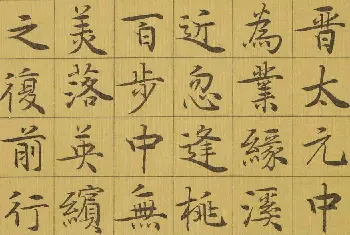 晋太元中
為業緣溪
近忽逢桃
百步中無
美落英繽
之復前行